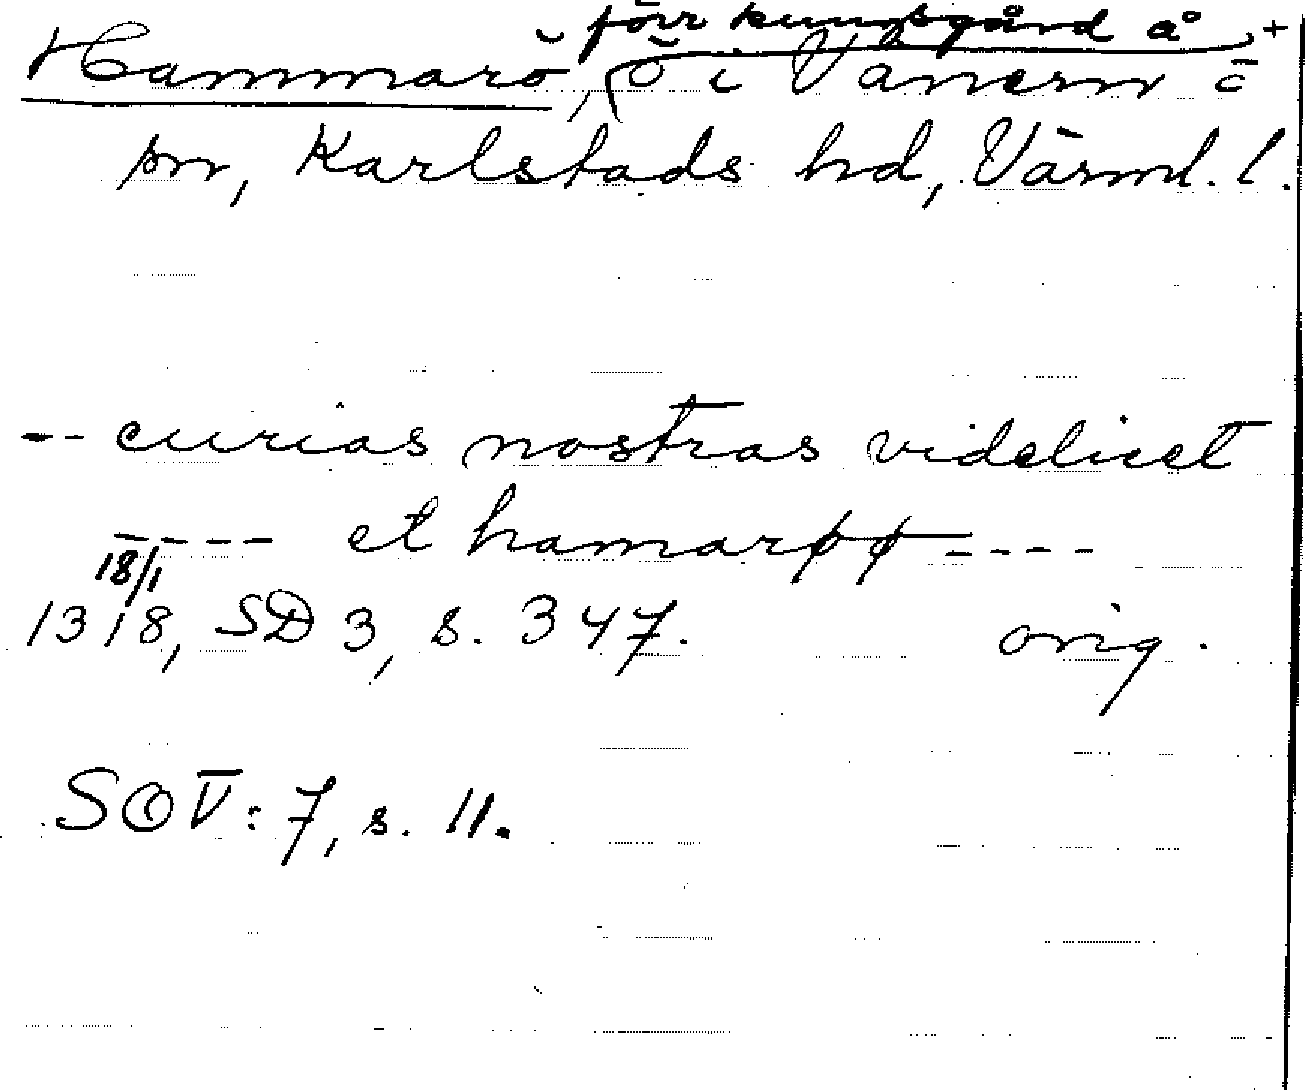 förr kungsgård å +
Hammarö, ö i Vänern =
sn, Karlstads hd, Värml. l.
-- curias nostras videlicet
----- et hamarøø ----
18/1
1318, SD 3, s. 347. orig.
SOV: 7, s. 11.